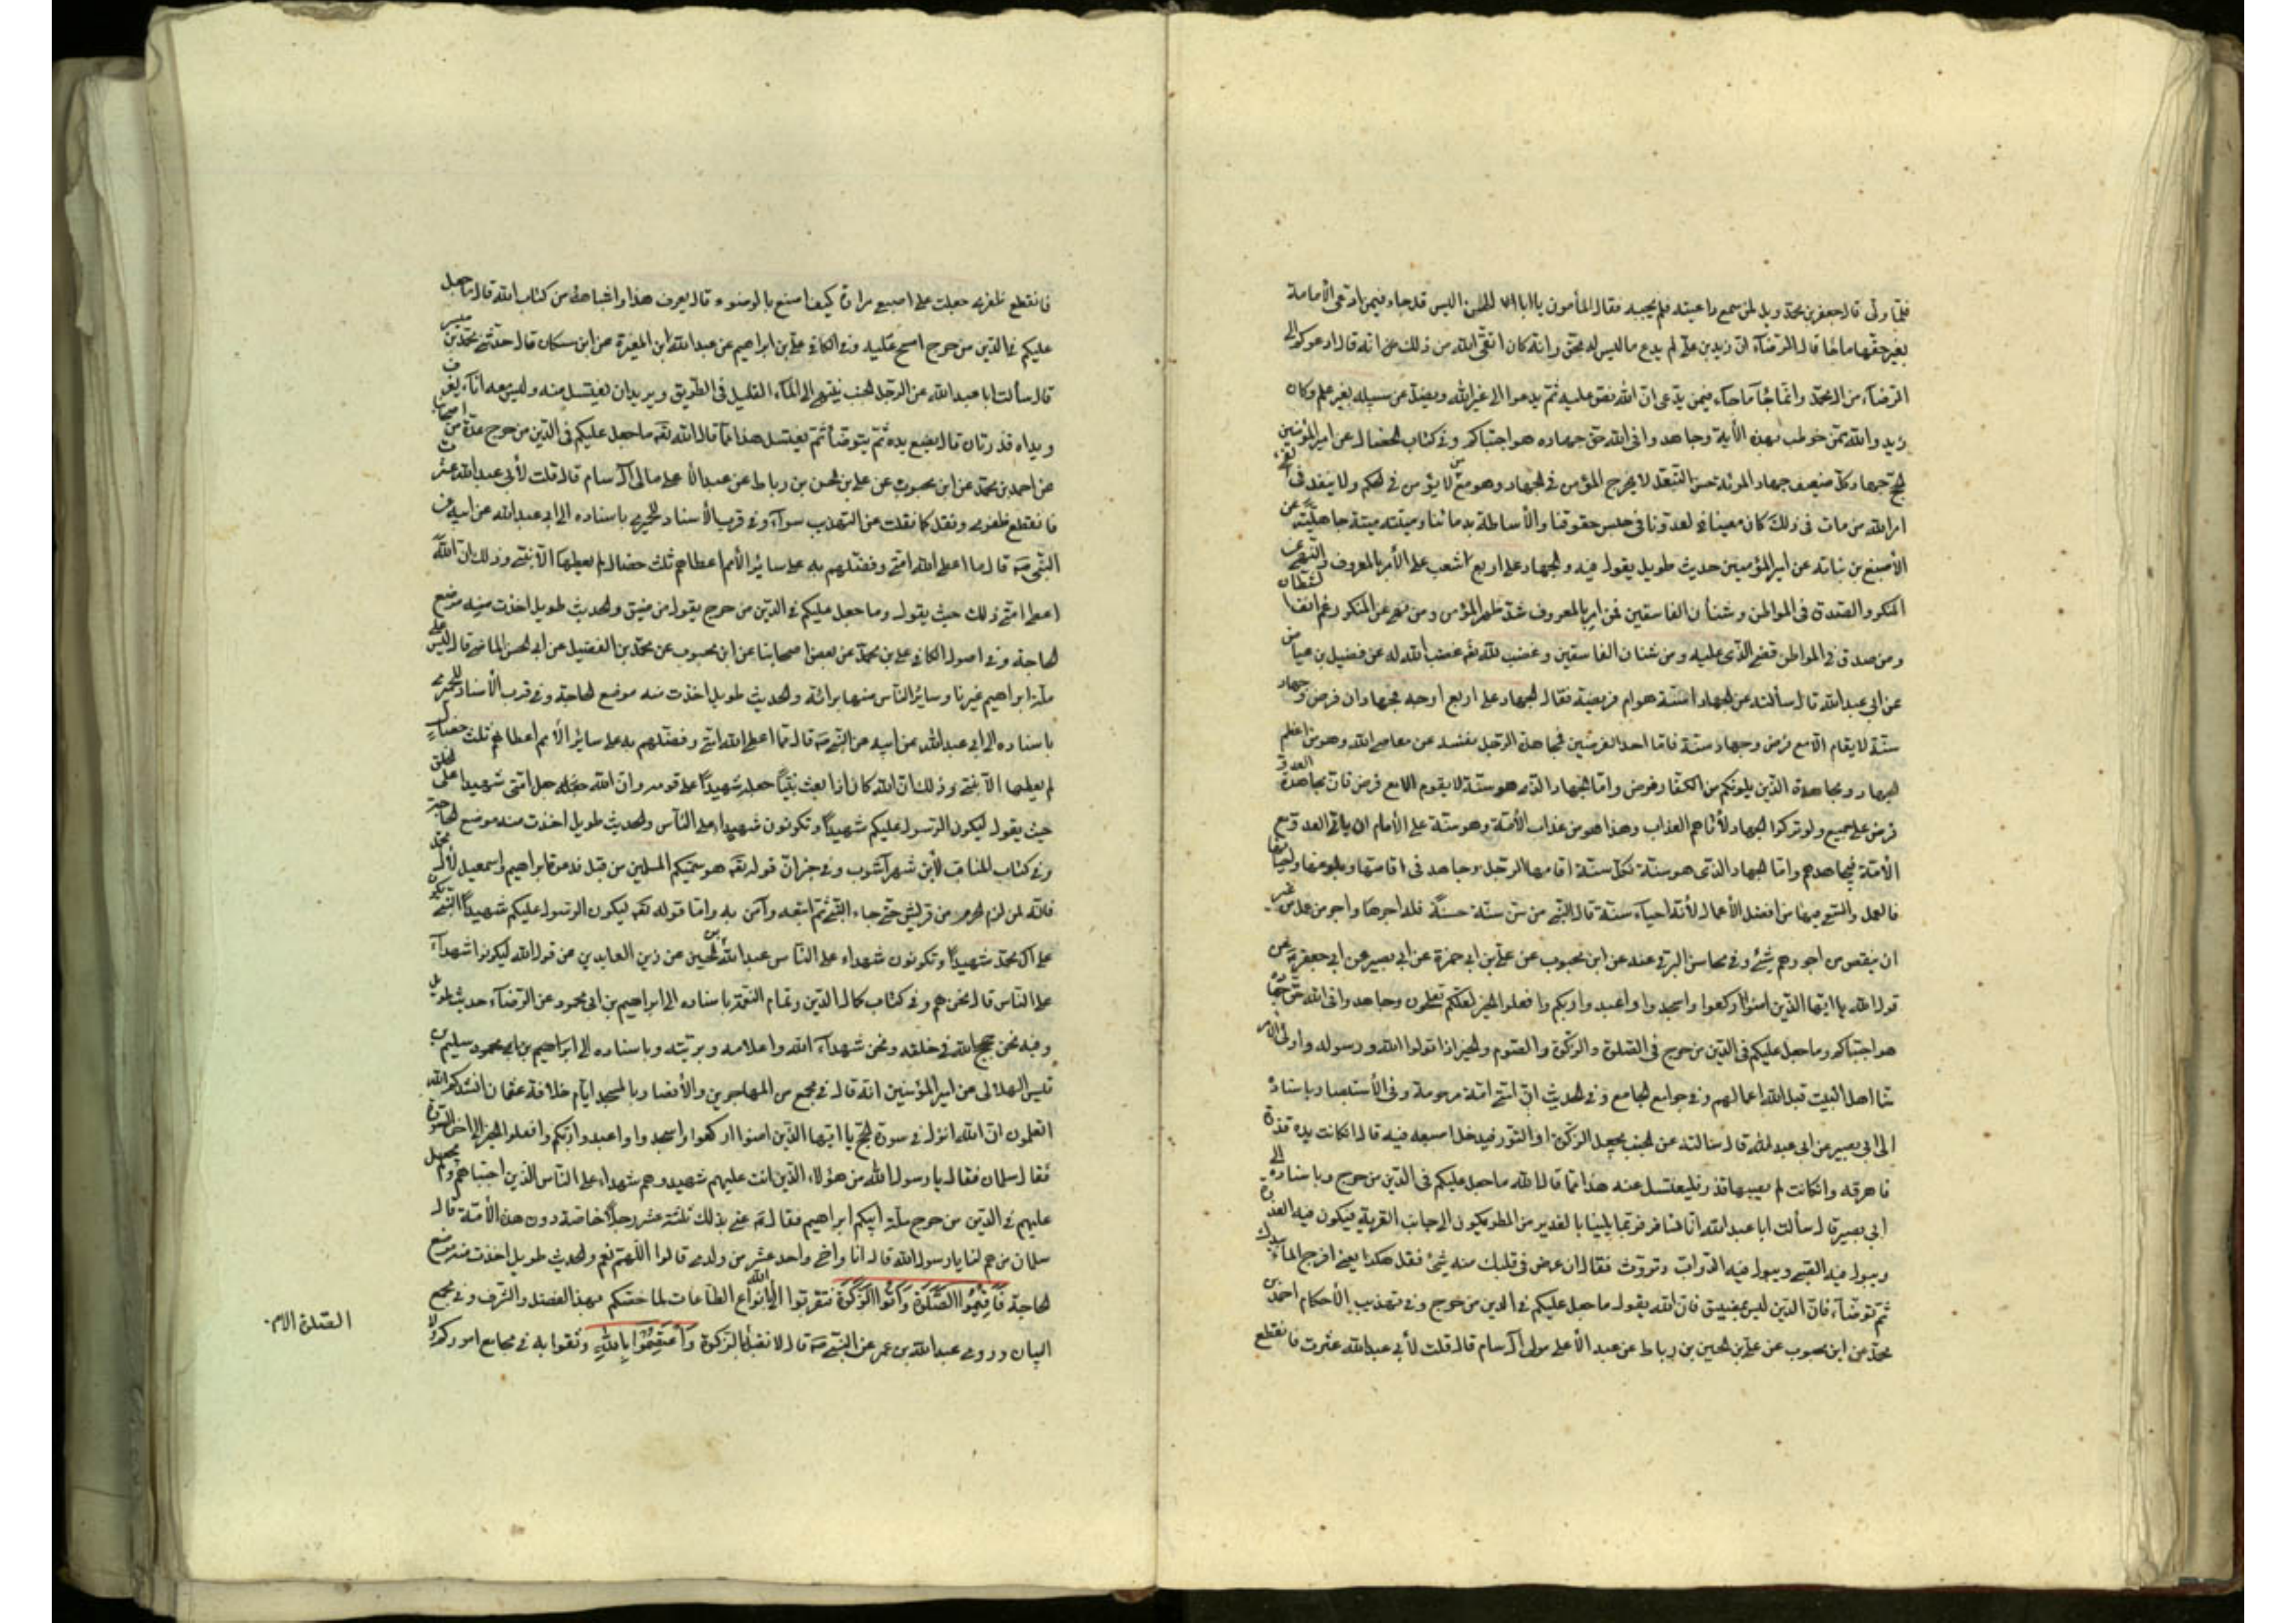 فلما ولى قال جعفر بن محمد ويل لمن سمع داعيته فلم يجبه فقال المأمون يا ابا الحسن اليس قد جاء فيمن ادعى الأمامة
بغير حقها ما جاء قال الرضاء ان زيد بن علي لم يدع ما ليس له بحق وانه كان اتقى الله من ذلك انه قال ادعوكم الى
الرضاء من ال محمد وانما جاء ما جاء فيمن يدعى ان الله نص عليه ثم يدعوا الى غير الله ويضل عن سبيله بغير علم وكان
زيد والله ممن خوطب بهذه الأية وجاهدوا في الله حق جهاده هو اجتباكم وفي كتاب الخصال عن امير المؤمنين
الحج جهاد كل ضعيف جهاد المرئة حسن التبعل لا يخرج المؤمن في الجهاد وهو مع من لا يؤمن في الحكم ولا ينفذ في الفئ
امر الله من مات في ذلك كان معينا لعدونا في حبس حقوقنا والأساطة بدمائنا وميتته ميتة جاهلية عن
الأصبغ بن نباته عن امير المؤمنين حديث طويل يقول فيه والجهاد على اربع شعب على الأمر بالمعروف والنهي عن
المنكر والصدق في المواطن وشنأن الفاسقين فمن امر بالمعروف شد ظهر المؤمن ومن نهى عن المنكر رغم انف الشيطان
ومن صدق في المواطن قضى الذي عليه ومن شنأن الفاسقين وغضب لله غضب الله له عن فضيل بن عياض
عن ابي عبدالله قال سألته عن الجهاد اسنة هو ام فريضة فقال الجهاد على اربع اوجه فجهادان فرض وجهاد
سنة لا يقام الا مع فرض وجهاد سنة فاما احد الفرضين فمجاهدة الرجل نفسه عن معاصي الله وهو من اعظم
الجهاد ومجاهدة الذين يلونكم من الكفار فرض واما الجهاد الذي هو سنة لا يقوم الا مع فرض فان مجاهدة العدو
فرض على جميع ولو تركوا الجهاد لأتاهم العذاب وهذا هو من عذاب الأمة وهو سنة على الأمام ان ياتي العدو مع
الأمة فيجاهدهم واما الجهاد الذي هو سنة فكل سنة اقامها الرجل وجاهد في اقامتها وبلوغها واحيائها
فالعمل والسعي فيها من افضل الأعمال لأنه احياء سنة قال النبي من سن سنة حسنة فله اجرها واجر من عمل من غير
ان ينقص من اجورهم شئ وفي محاسن البرقي عنه عن ابن محبوب عن علي بن ابي حمزة عن ابي بصير عن ابي جعفر عن
قول الله يا ايها الذين امنوا اركعوا واسجدوا واعبدوا ربكم وافعلوا الخير لعلكم تفلحون وجاهدوا في الله حق جهاده
هو اجتباكم وما جعل عليكم في الدين من حرج في الصلوة والزكوة والصوم والخير اذا تولوا الله ورسوله واولى الأمر
منا اهل البيت قبل الله اعمالهم وفي جوامع الجامع وفي الحديث ان امتي امة مرحومة وفي الأستبصار باسناده
الى ابي بصير عن ابي عبدالله قال سئالته عن الجنب يجعل الركوة او التور فيدخل اصبعه فيه قال انكانت يده قذرة
فاهرقه وانكانت لم يصبها قذر فليغتسل منه هذا مما قال الله ما جعل عليكم في الدين من حرج وباسناده الى
ابي بصير قال سألت ابا عبدالله انا نسافر فربما بلينا بالغدير من المطر يكون الى جانب القرية فيكون فيه العذرة
ويبول فيه الصبي ويبول فيه الدواب وتروث فقال ان عرض في قلبك منه شئ فقل هكذا يعني افرج الماء بيدك
ثم توضأ فان الدين ليس بمضيق فان الله يقول ما جعل عليكم في الدين من حرج وفي تهذيب الأحكام احمد بن
محمد عن ابن محبوب عن علي بن الحسين بن رباط عن عبد الأعلى مولى ال سام قال قلت لأبي عبدالله عثرت فانقطع
فانقطع ظفري جعلت على اصبعي مرارة كيف اصنع بالوضوء قال يعرف هذا واشباهه من كتاب الله قال ما جعل
عليكم في الدين من حرج امسح عليه وفي الكافي علي بن ابراهيم عن عبدالله ابن المغيرة عن ابن مسكان قال حدثني محمد بن ميسر
قال سألت ابا عبدالله عن الرجل الجنب ينتهي الى الماء القليل في الطريق ويريد ان يغتسل منه وليس معه اناء يغرف
ويداه قذرتان قال يضع يده ثم يتوضأ ثم يغتسل هذا مما قال الله تعه ما جعل عليكم في الدين من حرج عدة من اصحابنا
عن احمد بن محمد عن ابن محبوب عن علي بن الحسن بن رباط عن عبد الأعلى مولى ال سام قال قلت لأبي عبدالله عثرت
فانقطع ظفري ونقل كما نقلت عن التهذيب سواء وفي قرب الأسناد للحميري باسناده الى ابي عبدالله عن ابيه عن
النبي صه قال مما اعطى الله امتي وفضلهم به على سائر الأمم اعطاهم ثلث خصال لم يعطها الا نبي وذلك ان الله
اعطى امتي ذلك حيث يقول وما جعل عليكم في الدين من حرج يقول من ضيق والحديث طويل اخذت منه موضع
الحاجة وفي اصول الكافي علي بن محمد عن بعض اصحابنا عن ابن محبوب عن محمد بن الفضيل عن ابي الحسن الماضي قال ليس على
ملة ابراهيم غيرنا وسائر الناس منها برائة والحديث طويل اخذت منه موضع الحاجة وفي قرب الأسناد للحميري
باسناده الى ابي عبدالله عن ابيه عن النبي صه قال مما اعطى الله امتي وفضلهم به على سائر الأمم اعطاهم ثلث خصال
لم يعطها الا نبي وذلك ان الله كان اذا بعث نبيا جعله شهيدا على قومه وان الله جعل امتي شهيدا على الخلق
حيث يقول ليكون الرسول عليكم شهيدا وتكونون شهداء على الناس والحديث طويل اخذت منه موضع الحاجة
وفي كتاب المناقب لأبن شهرآشوب وفي خبر ان قوله تعه هو سميكم المسلمين من قبل فدعوة ابراهيم واسمعيل لأل محمد
فانه لمن لزم الحرم من قريش حتى جاء النبي ثم اتبعه وآمن به واما قوله تعه ليكون الرسول عليكم شهيدا النبي يكون
على ال محمد شهيدا وتكونون شهداء على الناس عبدالله بن الحسين عن زين العابدين عن قول الله ليكونوا شهداء
على الناس قال نحن هم وفي كتاب كمال الدين وتمام النعمة باسناده الى ابراهيم بن ابي محمود عن الرضاء حديث طويل
وفيه نحن حجج الله في خلقه ونحن شهداء الله واعلامه وبريته وباسناده الى ابراهيم بن ابي محمود سليم بن
قيس الهلالى عن امير المؤمنين انه قال في مجمع من المهاجرين والأنصار بالمسجد ايام خلافة عثمان انشدكم الله
اتعلمون ان الله انزل في سورة الحج يا ايها الذين امنوا اركعوا واسجدوا واعبدوا ربكم وافعلوا الخير الى اخر السورة
فقال سلمان فقال يا رسول الله من هؤلاء الذين انت عليهم شهيد وهم شهداء على الناس الذين اجتباهم ولم يجعل
عليهم في الدين من حرج ملة ابيكم ابراهيم فقال صه عنى بذلك ثلثة عشر رجلا خاصة دون هذه الأمة قال
سلمان من هم لنا يا رسول الله قال انا واخى واحد عشر من ولدى قالوا اللهم نعم والحديث طويل اخذت منه موضع
الحاجة فَأَقِيمُوا الصَّلٰوةَ وَآتُوا الزَّكٰوةَ فتقربوا الى الله بانواع الطاعات لما خصكم بهذا الفضل والشرف وفي مجمع
البيان وروى عبدالله بن عمر عن النبي صه قال لا تقبل الصلوة الا بالزكوة وَاعْتَصِمُوا بِاللّٰهِ وثقوا به في مجامع اموركم ولا